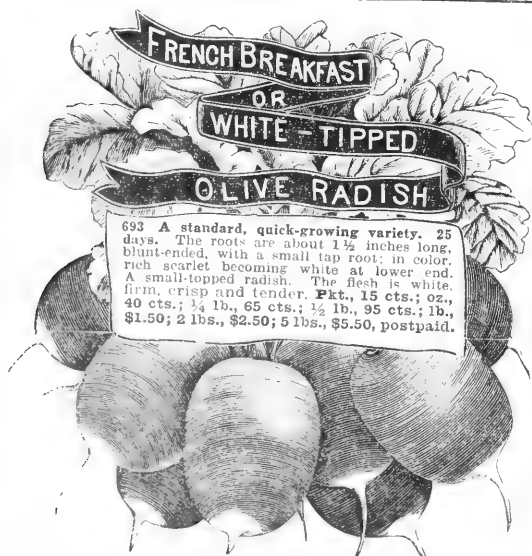 FRENCH BREAKFAST
OR
WHITE-TIPPED
OLIVE RADISH
693 A standard, quick-growing variety. 25
days. The roots are about 1½ inches long,
blunt-ended, with a small tap root; in color,
rich scarlet becoming white at lower end.
A small-topped radish. The flesh is white,
firm, crisp and tender. Pkt., 15 cts.; oz.,
40 cts.; ¼ lb., 65 cts.; ½ lb., 95 cts.; lb.,
$1.50; 2 lbs., $2.50; 5 lbs., $5.50, postpaid.